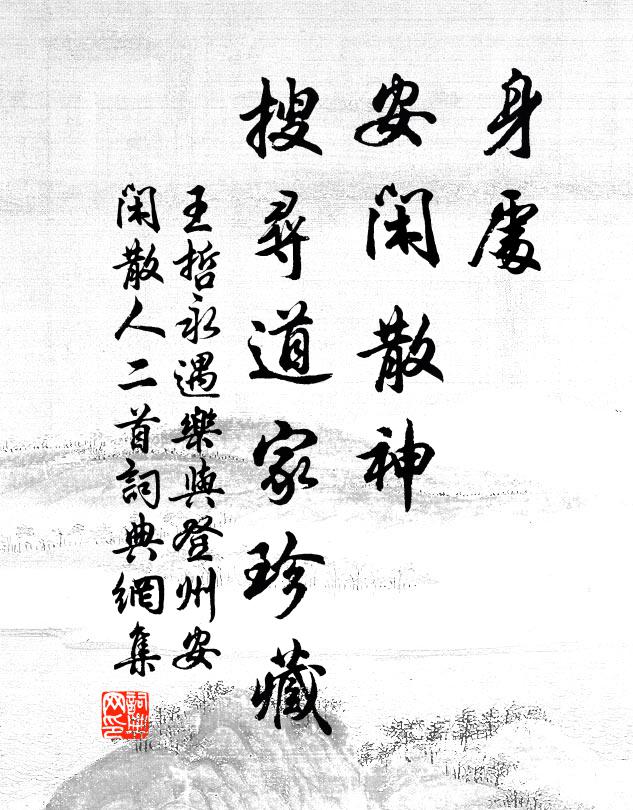 身處
安閑散神
搜尋道家珍藏
王哲永遇樂與登州安
閑散人二首詞典網集